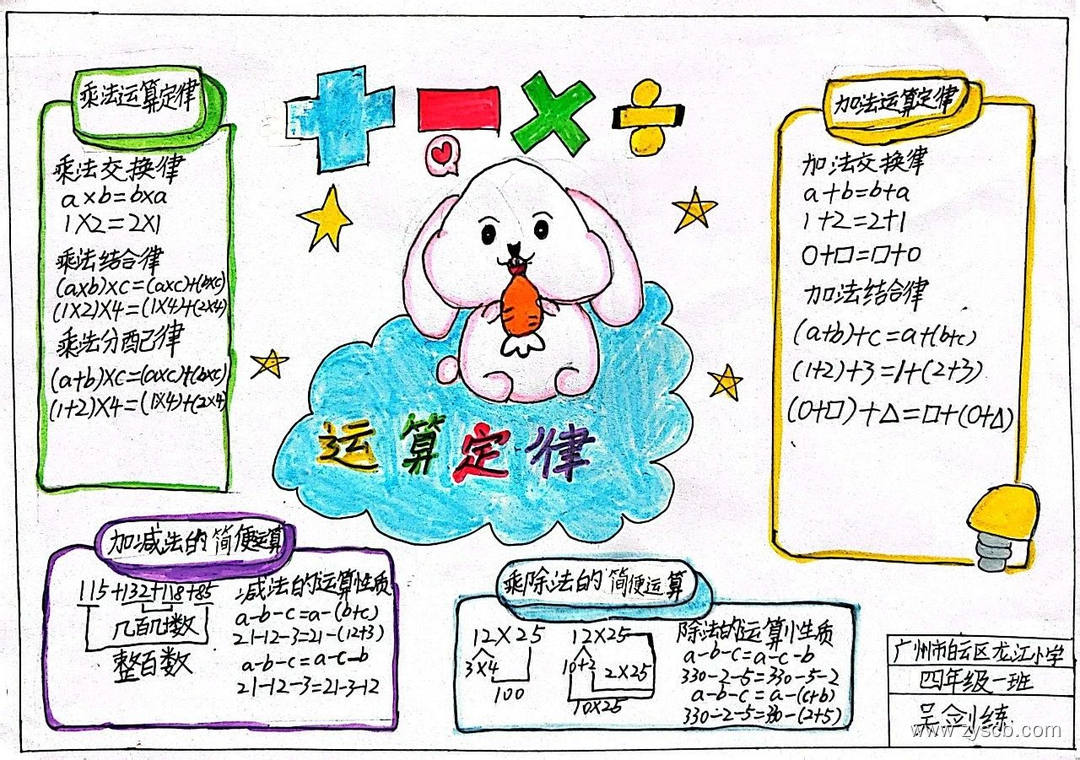 乘法运算定律
乘法交换律
a×b=b×a
1×2=2×1
乘法结合律
(a×b)×c=(a×c)+(b×c)
(1×2)×4=(1×4)+(2×4)
乘法分配律
(a+b)×c=(a×c)+(b×c)
(1+2)×4=(1×4)+(2×4)
+ - × ÷
运算定律
加法运算定律
加法交换律
a+b=b+a
1+2=2+1
0+□=□+0
加法结合律
(a+b)+c=a+(b+c)
(1+2)+3=1+(2+3)
(0+□)+△=□+(0+△)
加减法的简便运算
115+132+118+85
几百几数
整百数
减法的运算性质
a-b-c=a-(b+c)
21-12-3=21-(12+3)
a-b-c=a-c-b
21-12-3=21-3-12
乘除法的简便运算
12×25
3×4
100
12×25
10+2
2×25
10×25
除法的运算性质
a-b-c=a-c-b
330-2-5=330-5-2
a-b-c=a-(c+b)
330-2-5=330-(2+5)
广州市白云区龙江小学
四年级一班
吴剑练
www.zyscb.com